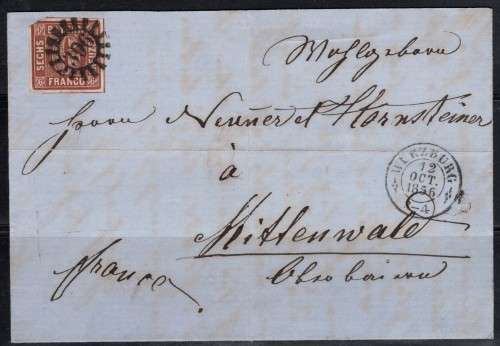 SECHS
FRANCO
Wohlgeborn
Herrn Neuner et Hornsteiner
à
WÜRZBURG
12
OCT.
1856
4
Mittenwald
franco.
Oberbaiern